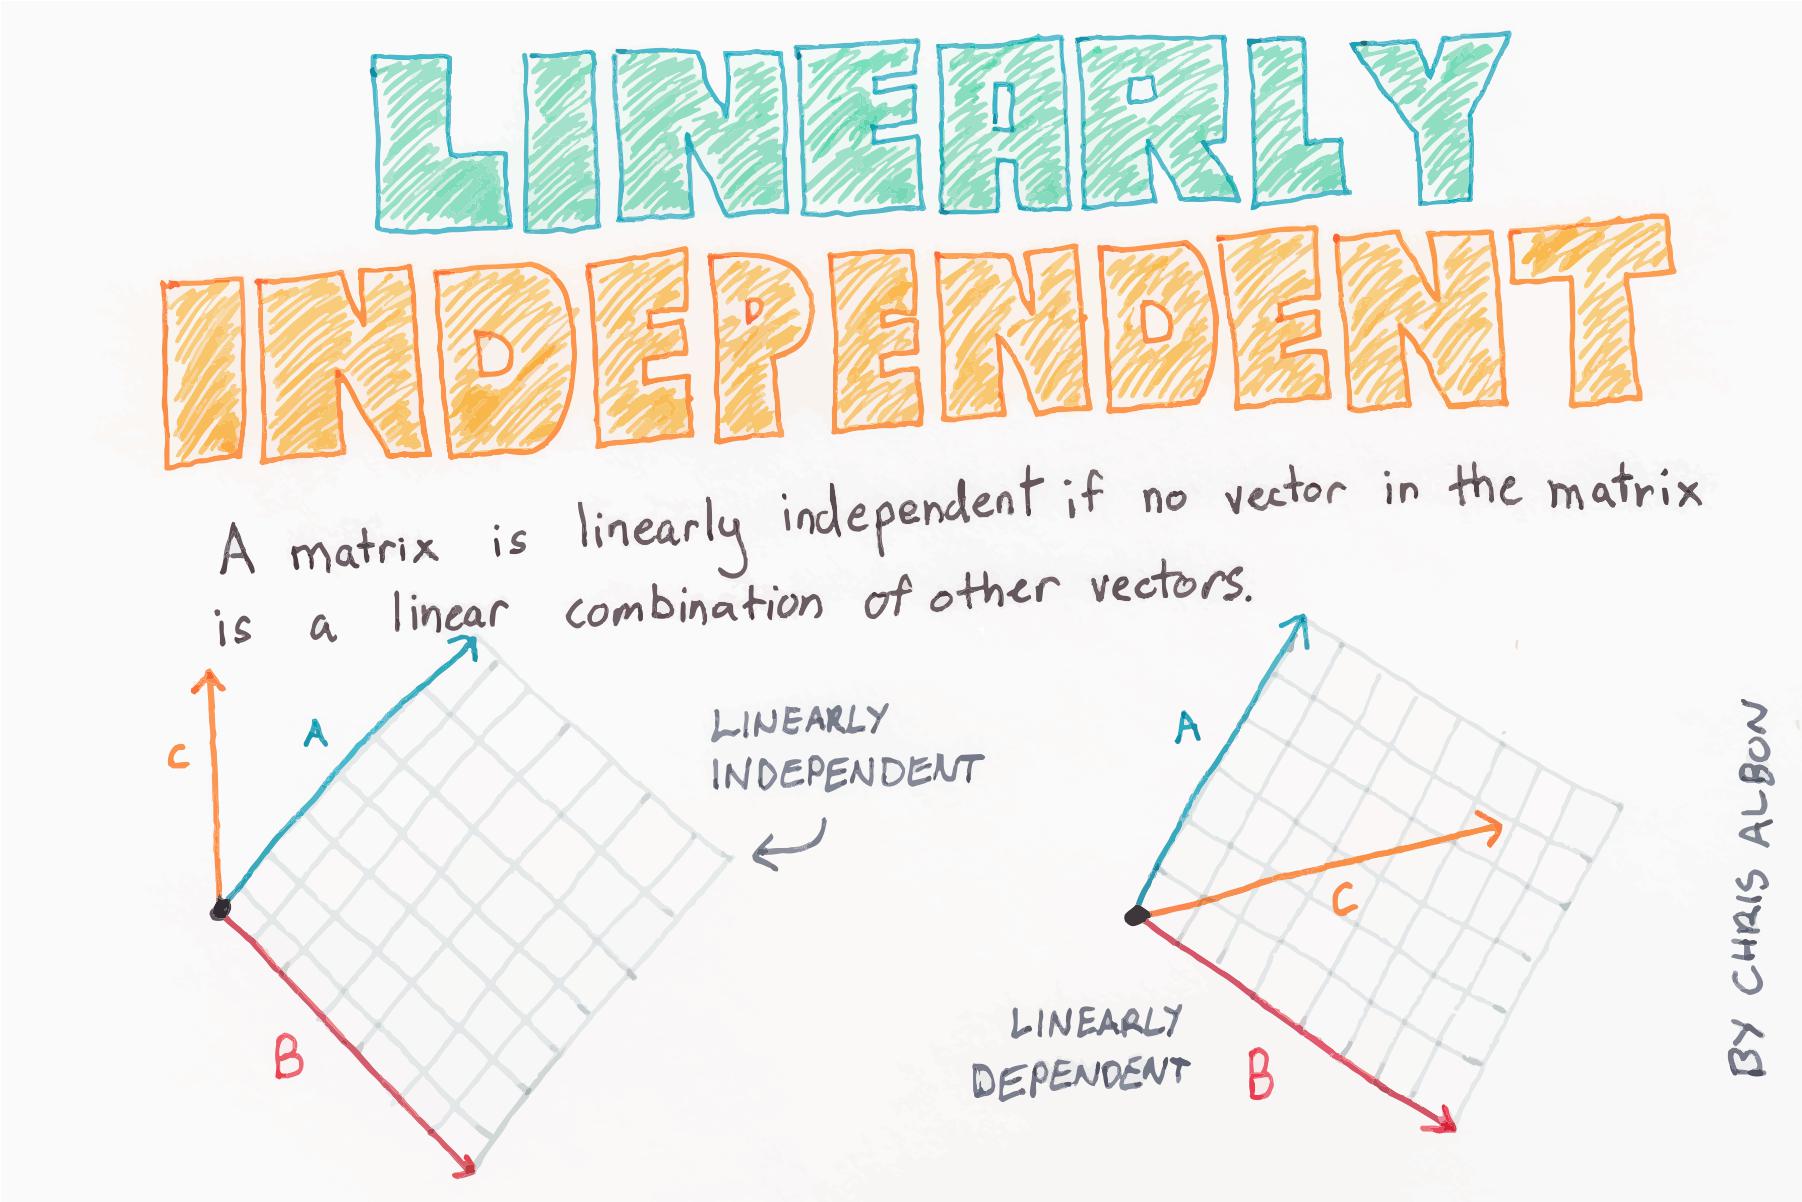 LINEARLY
INDEPENDENT
A matrix is linearly independent if no vector in the matrix
is a linear combination of other vectors.
C
A
B
LINEARLY
INDEPENDENT
A
C
B
LINEARLY
DEPENDENT
BY CHRIS ALBON